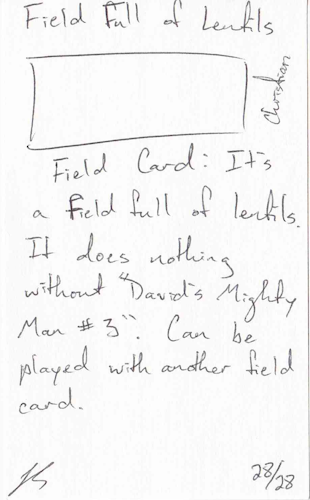 Field Full of Lentils
Christian
Field Card: It's
a field full of lentils.
It does nothing
without "David's Mighty
Man #3". Can be
played with another field
card.
28/28